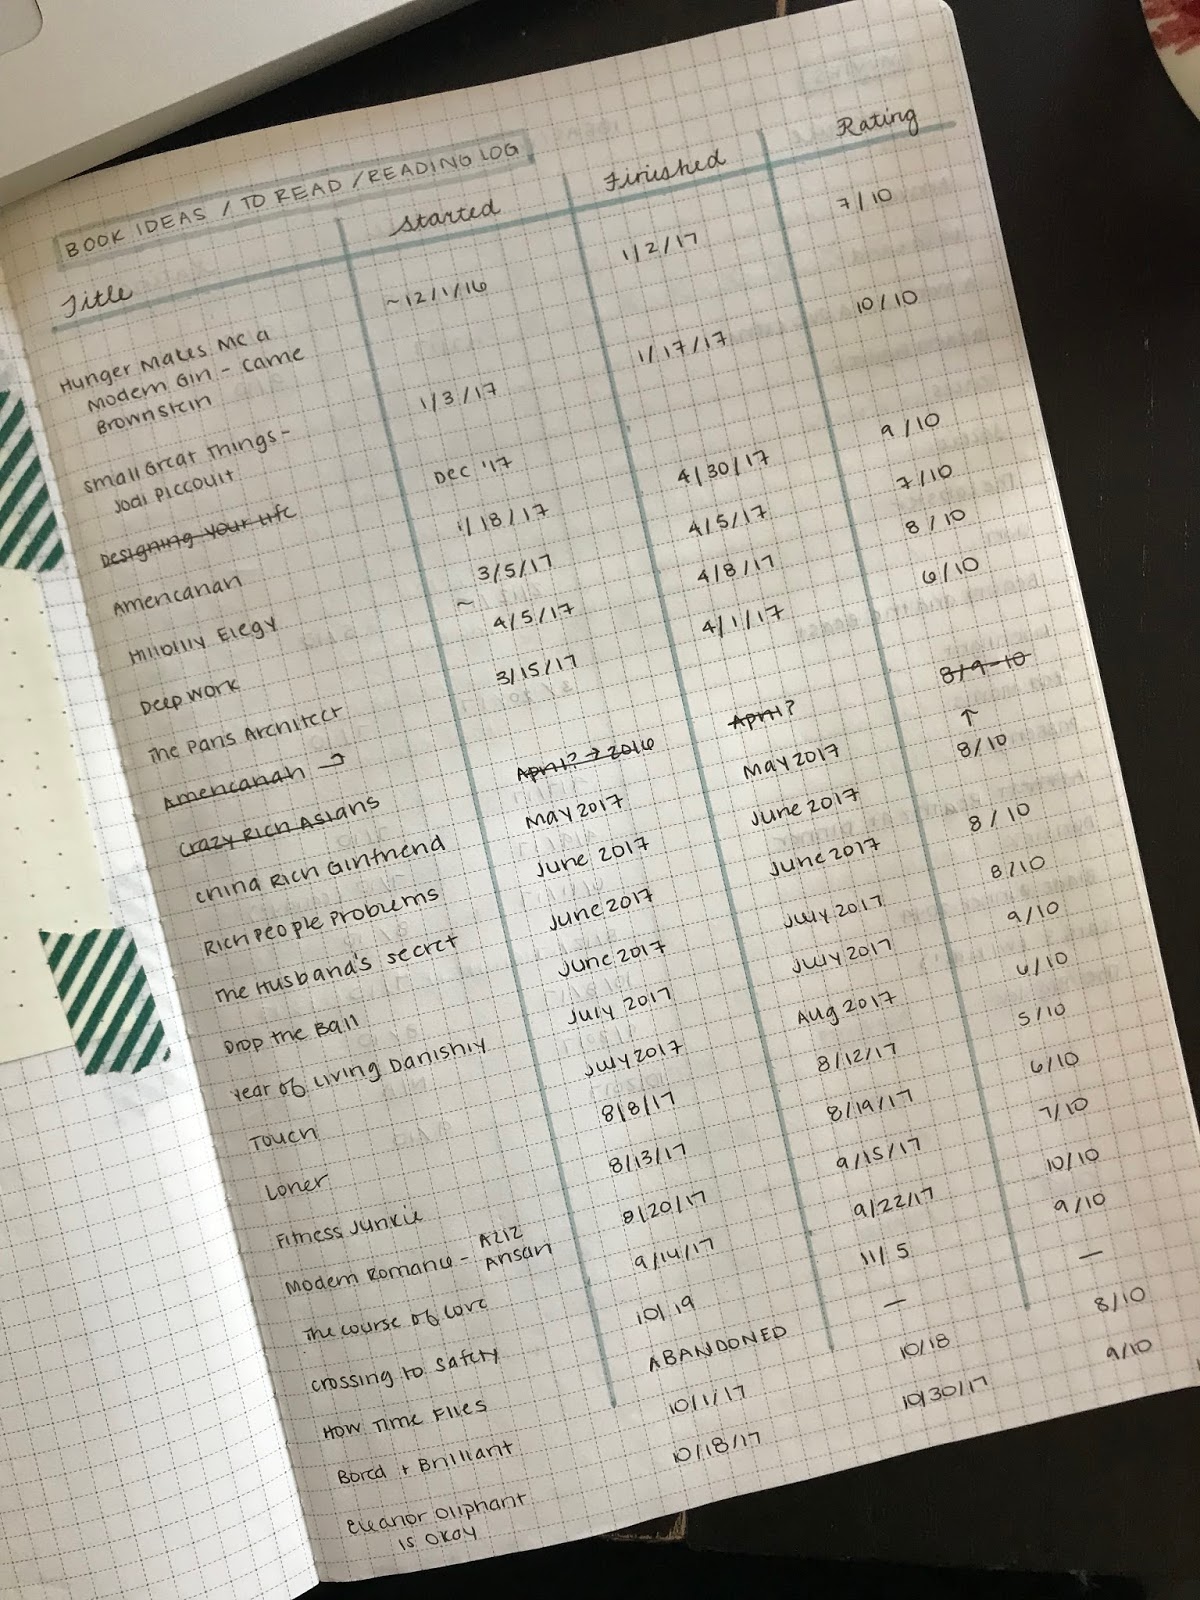 BOOK IDEAS / TO READ / READING LOG
Title Started Finished Rating
Hunger Makes Me a ~12/1/16 1/2/17 7/10
Modern Girl - Carrie
Brownstein
Small Great Things - 1/3/17 1/17/17 10/10
Jodi Piccoult
Designing Your Life Dec '17
Americanah 1/18/17 4/30/17 9/10
Hillbilly Elegy 3/5/17 4/5/17 7/10
Deep Work ~4/5/17 4/8/17 8/10
The Paris Architect 3/15/17 4/1/17 6/10
Americanah →
Crazy Rich Asians April? → 2016 April? 8/9-10
China Rich Girlfriend May 2017 May 2017 ↑
Rich People Problems June 2017 June 2017 8/10
The Husband's Secret June 2017 June 2017 8/10
Drop the Ball June 2017 July 2017 8/10
Year of Living Danishly July 2017 July 2017 9/10
Touch July 2017 Aug 2017 6/10
Loner 8/8/17 8/12/17 5/10
Fitness Junkie 8/13/17 8/19/17 6/10
Modern Romance - Aziz Ansari 8/20/17 9/15/17 7/10
The Course of Love 9/14/17 9/22/17 10/10
Crossing to Safety 10/19 11/5 9/10
How Time Flies ABANDONED — —
Bored + Brilliant 10/1/17 10/18 8/10
Eleanor Oliphant 10/18/17 10/30/17 9/10
is Okay